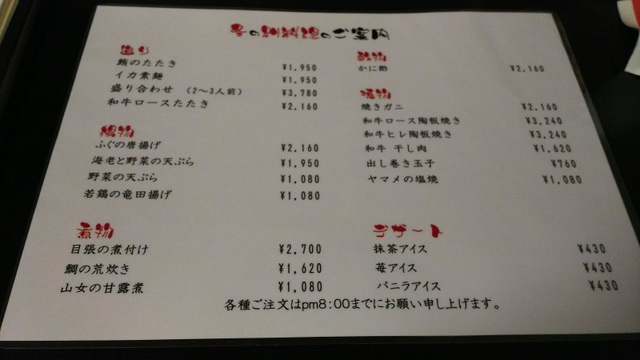 冬の別料理のご案内
造り
鮪のたたき ¥1,950
イカ素麺 ¥1,950
盛り合わせ (2〜3人前) ¥3,780
和牛ロースたたき ¥2,160
揚物
ふぐの唐揚げ ¥2,160
海老と野菜の天ぷら ¥1,950
野菜の天ぷら ¥1,080
若鶏の竜田揚げ ¥1,080
煮物
目張の煮付け ¥2,700
鯛の荒炊き ¥1,620
山女の甘露煮 ¥1,080
酢物
かに酢 ¥2,160
焼物
焼きガニ ¥2,160
和牛ロース陶板焼き ¥3,240
和牛ヒレ陶板焼き ¥3,240
和牛 干し肉 ¥1,620
出し巻き玉子 ¥760
ヤマメの塩焼 ¥1,080
デザート
抹茶アイス ¥430
苺アイス ¥430
バニラアイス ¥430
各種ご注文はpm8:00までにお願い申し上げます。